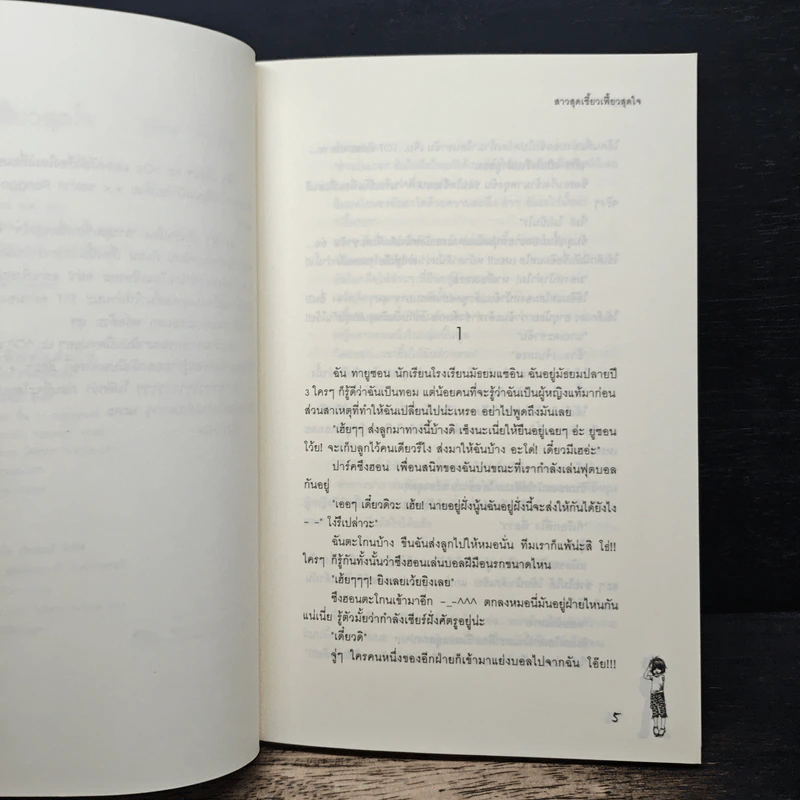 สาวสุดเซี้ยวเฟี้ยวสุดใจ
1
ฉัน ทายูซอน นักเรียนโรงเรียนมัธยมแชอิน ฉันอยู่มัธยมปลายปี
3 ใครๆ ก็รู้ดีว่าฉันเป็นทอม แต่น้อยคนที่จะรู้ว่าฉันเป็นผู้หญิงแท้มาก่อน
ส่วนสาเหตุที่ทำให้ฉันเปลี่ยนไปน่ะเหรอ อย่าไปพูดถึงมันเลย
"เฮ้ยๆๆ ส่งลูกมาทางนี้บ้างดิ เซ็งนะเนี่ยให้ยืนอยู่เฉยๆ อ่ะ ยูซอน
โว้ย! จะเก็บลูกไว้คนเดียวรึไง ส่งมาให้ฉันบ้าง อะโด่! เดี๋ยวมีเฮอ่ะ"
ปาร์คซึงฮอน เพื่อนสนิทของฉันบ่นขณะที่เรากำลังเล่นฟุตบอล
กันอยู่
"เออๆ เดี๋ยวดิวะ เฮ้ย! นายอยู่ฝั่งนู้นฉันอยู่ฝั่งนี้จะส่งให้กันได้ยังไง
- -" โง่รึเปล่าวะ"
ฉันตะโกนบ้าง ขืนฉันส่งลูกไปให้หมอนั่น ทีมเราก็แพ้น่ะสิ โธ่!!
ใครๆ ก็รู้กันทั้งนั้นว่าซึงฮอนเล่นบอลฝีมือนรกขนาดไหน
"เฮ้ยๆๆๆ! ยิงเลยเว้ยยิงเลย"
ซึงฮอนตะโกนเข้ามาอีก -_-^^^ ตกลงหมอนี่มันอยู่ฝ่ายไหนกัน
แน่เนี่ย รู้ตัวมั้ยว่ากำลังเชียร์ฝั่งศัตรูอยู่น่ะ
"เดี๋ยวดิ"
จู่ๆ ใครคนหนึ่งของอีกฝ่ายก็เข้ามาแย่งบอลไปจากฉัน โอ๊ย!!!
5